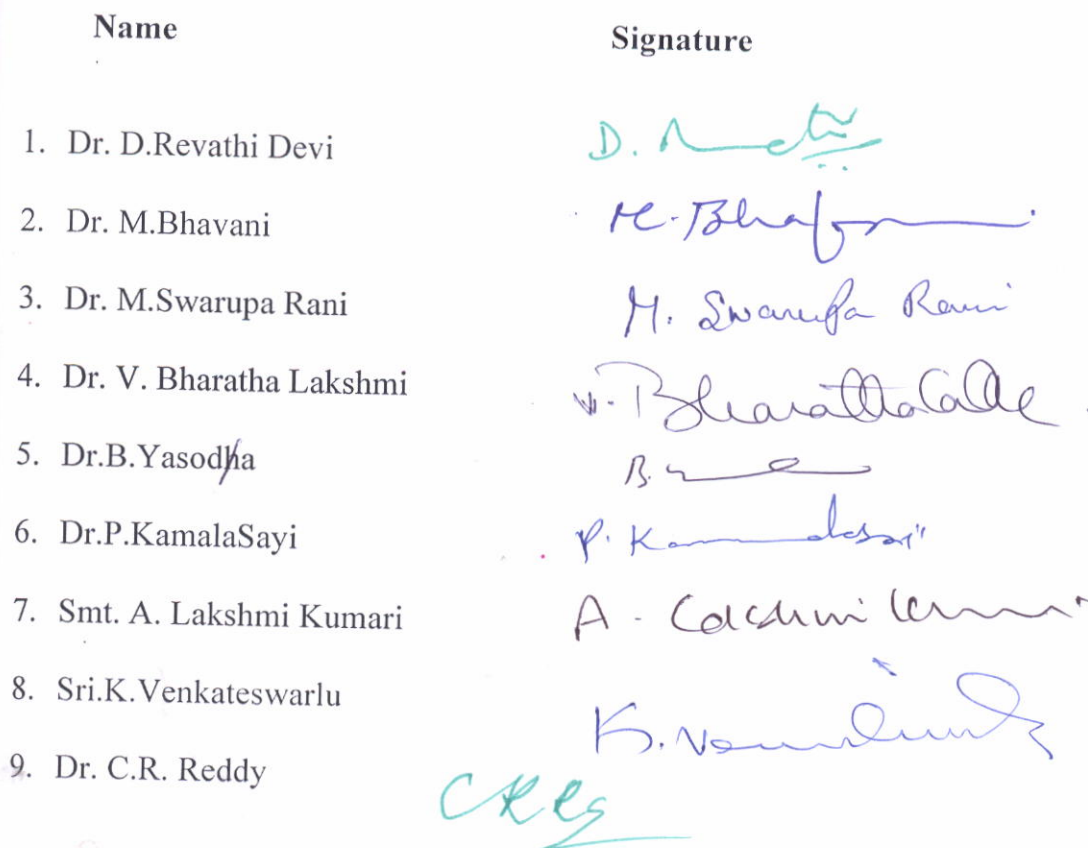 Name Signature
1. Dr. D.Revathi Devi D.
2. Dr. M.Bhavani M. Bhavani
3. Dr. M.Swarupa Rani M. Swarupa Rani
4. Dr. V. Bharatha Lakshmi V. Bharatha
5. Dr.B.Yasodha B.
6. Dr.P.KamalaSayi P. Kamalasayi
7. Smt. A. Lakshmi Kumari A. Lakshmi Kumari
8. Sri.K.Venkateswarlu K.
9. Dr. C.R. Reddy